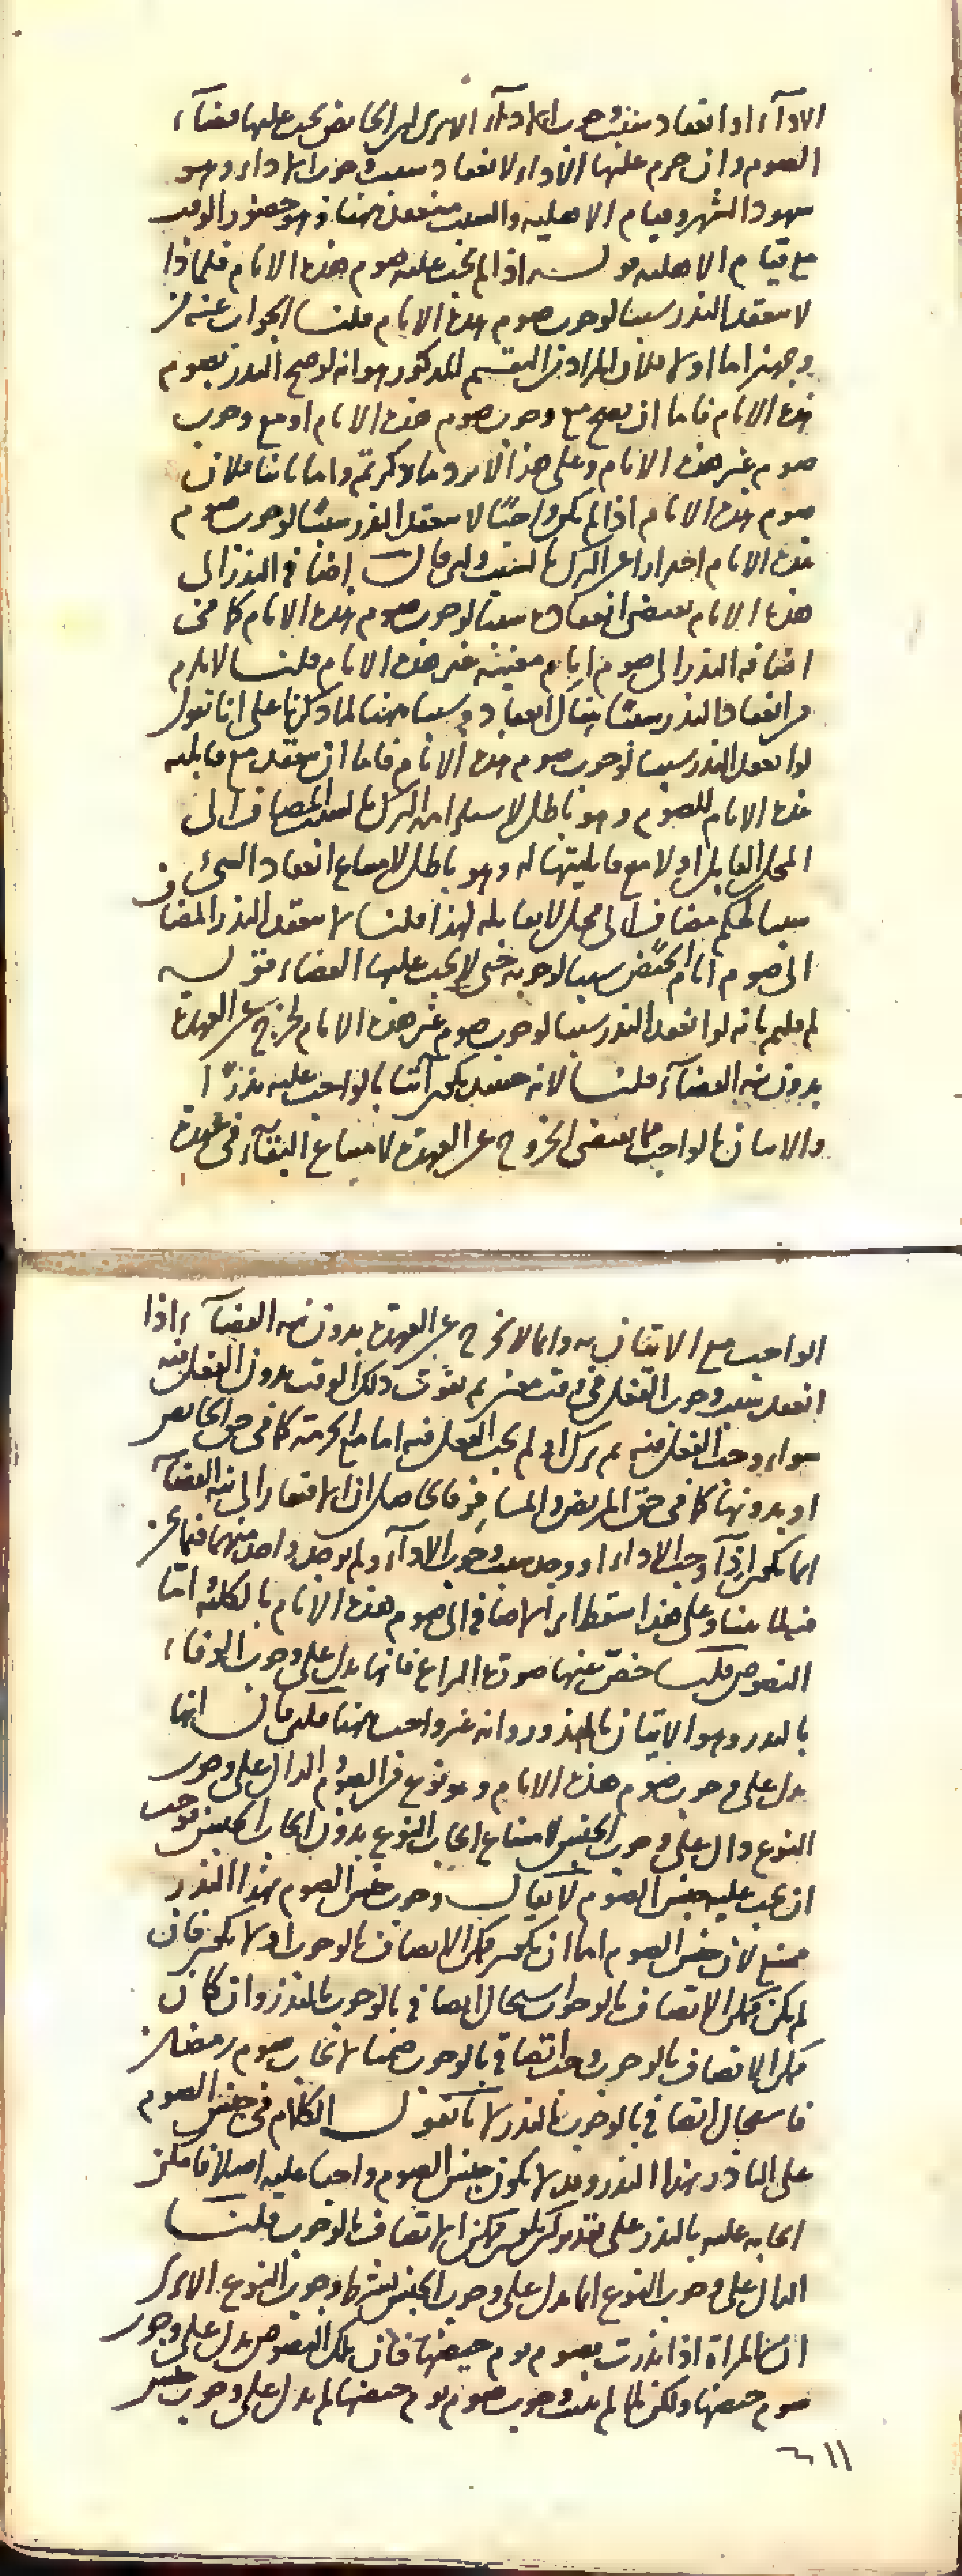 الاداء او انعقاد سبب وجوب الاداء الا يرى ان الحايض يجب عليها قضاء
الصوم وان حرم عليها الاداء لانعقاد سبب وجوب الاداء وهو
شهود الشهر وقيام الاهلية والسبب منعقد ههنا وهو حضور الوقت
مع قيام الاهلية قوله اذا لم يجب عليه صوم هذه الايام فلماذا
لا ينعقد النذر سببا لوجوب صوم هذه الايام قلنا الجواب عنه من
وجهين اما اولا فلان المراد من التقسيم المذكور هو انه لو صح النذر بصوم
هذه الايام فاما ان يصح مع وجوب صوم هذه الايام او مع وجوب
صوم غير هذه الايام وعلى هذا لا يرد ما ذكرتم واما ثانيا فلان
صوم هذه الايام اذا لم يكن واجبا لا ينعقد النذر سببا لوجوب صوم
هذه الايام احترازا عن الترك بالسبب ولئن قال اضافة النذر الى
هذه الايام يقتضى انعقاده سببا لوجوب صوم هذه الايام كما فى
اضافة النذر الى صوم ايام معينة غير هذه الايام قلنا لا يلزم
من انعقاد النذر سببا هناك انعقاده سببا ههنا لما ذكرنا على انا نقول
لو انعقد النذر سببا لوجوب صوم هذه الايام فاما ان ينعقد مع قابلية
هذه الايام للصوم وهو باطل لاستلزامه الترك بالسبب المضاف الى
المحل القابل او لا مع قابليتها له وهو باطل لامتناع انعقاد الشئ
سببا لحكم مضاف الى محل لا يقابله لهذا قلنا لا ينعقد النذر المضاف
الى صوم ايام الحيض سببا لوجوبه حتى لا يجب عليها القضاء قوله
لم قلتم بانه لو انعقد النذر سببا لوجوب صوم غير هذه الايام لخرج عن العهدة
بدون نية القضاء قلنا لانه حينئذ يكون آتيا بالواجب عليه نذرا
والاتيان بالواجب مما يقتضى الخروج عن العهدة لامتناع البقاء فى عهدة
الواجب مع الاتيان به وانما لا يخرج عن العهدة بدون نية القضاء اذا
انعقد سبب وجوب الفعل فى وقت معين ثم يفوت ذلك الوقت بدون الفعل فيه
سواء وجب الفعل فيه ثم ترك او لم يجب الفعل فيه اما مع الحرمة كما فى حق الحايض
او بدونها كما فى حق المريض والمسافر فالحاصل ان الافتقار الى نية القضاء
انما يكون اذا وجب الاداء او وجد سبب وجوب الاداء ولم يوجد واحد منهما فيما نحن
فيه لما بينا وعلى هذا سقط اثر الاضافة الى صوم هذه الايام بالكلية واما
النصوص قلنا خص عنها صورة النزاع فانها تدل على وجوب الوفاء
بالنذر وهو الاتيان بالمنذور وانه غير واجب ههنا فلئن قال انها
تدل على وجوب صوم هذه الايام وهو نوع من الصوم الدال على وجوب
النوع دال على وجوب الجنس لامتناع ايجاب النوع بدون ايجاب الجنس فوجب
ان يجب عليه جنس الصوم لا يقال وجوب جنس الصوم بهذا النذر
ممتنع لان جنس الصوم اما ان يكون ممكن الاتصاف بالوجوب او لا يكون فان
لم يكن ممكن الاتصاف بالوجوب استحال اتصافه بالوجوب بالنذر وان كان
ممكن الاتصاف بالوجوب وجب اتصافه بالوجوب ضمنا لايجاب صوم رمضان
فاستحال اتصافه بالوجوب بالنذر لانا نقول الكلام فى جنس الصوم
على الناذر بهذا النذر وقد لا يكون جنس الصوم واجبا عليه اصلا فامكن
ايجابه عليه بالنذر على تقدير كونه ممكن الاتصاف بالوجوب قلنا
الدال على وجوب النوع انما يدل على وجوب الجنس بشرط وجوب النوع الا يرى
ان المراة اذا نذرت بصوم يوم حيضها فان تلك النصوص تدل على وجوب
صوم حيضها ولكن لما لم يثبت وجوب صوم يوم حيضها لم يدل على وجوب جنس